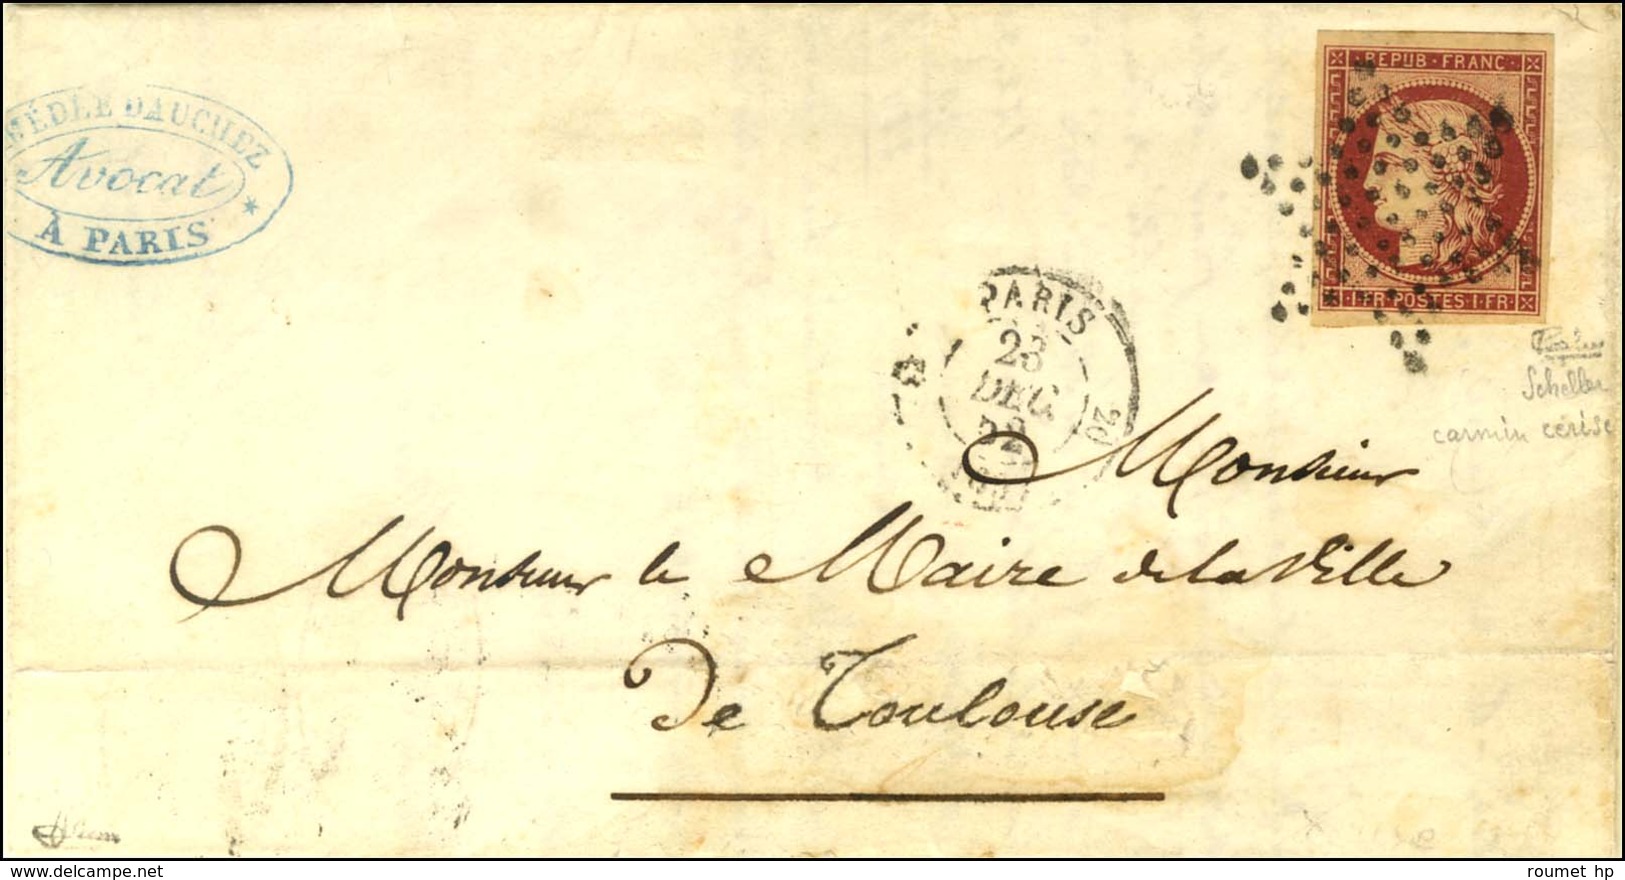 REPUB·FRANC·
·1·FR·POSTES·1·FR·
ÉDÉE DAUCHEZ
Avocat
À PARIS
PARIS
23
DEC.
52
Scheller
carmin cerise
Monsieur
Monsieur le Maire de la Ville
De Toulouse
roumet hp